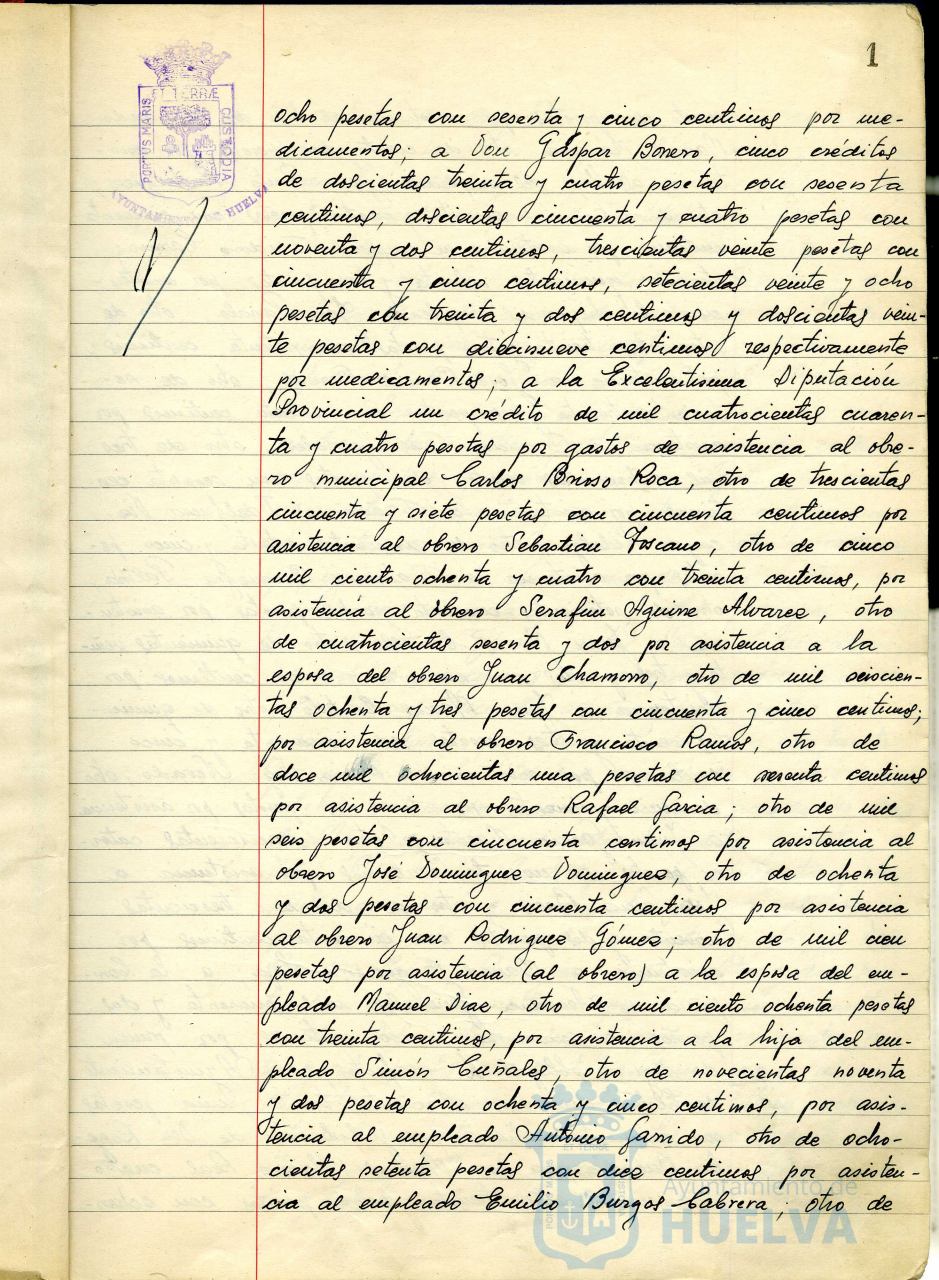 1
ET TERRÆ
PORTUS MARIS
CUSTODIA
AYUNTAMIENTO DE HUELVA
ocho pesetas con sesenta y cinco centimos por me-
dicamentos; a Don Gaspar Borrero, cinco créditos
de doscientas treinta y cuatro pesetas con sesenta
centimos, doscientas cincuenta y cuatro pesetas con
noventa y dos centimos, trescientas veinte pesetas con
cincuenta y cinco centimos, setecientas veinte y ocho
pesetas con treinta y dos centimos y doscientas vein-
te pesetas con diecinueve centimos respectivamente
por medicamentos; a la Excelentisima Diputación
Provincial un crédito de mil cuatrocientas cuaren-
ta y cuatro pesetas por gastos de asistencia al obre-
ro municipal Carlos Brioso Roca, otro de trescientas
cincuenta y siete pesetas con cincuenta centimos por
asistencia al obrero Sebastian Toscano, otro de cinco
mil ciento ochenta y cuatro con treinta centimos, por
asistencia al obrero Serafin Aguirre Alvarez, otro
de cuatrocientas sesenta y dos por asistencia a la
esposa del obrero Juan Chamorro, otro de mil seiscien-
tas ochenta y tres pesetas con cincuenta y cinco centimos;
por asistencia al obrero Francisco Ramos, otro de
doce mil ochocientas una pesetas con centimos
por asistencia al obrero Rafael Garcia; otro de mil
seis pesetas con cincuenta centimos por asistencia al
obrero José Dominguez Dominguez, otro de ochenta
y dos pesetas con cincuenta centimos por asistencia
al obrero Juan Rodriguez Gómez; otro de mil cien
pesetas por asistencia (al obrero) a la esposa del em-
pleado Manuel Diaz, otro de mil ciento ochenta pesetas
con treinta centimos, por asistencia a la hija del em-
pleado Simón Cuñales, otro de novecientas noventa
y dos pesetas con ochenta y cinco centimos, por asis-
tencia al empleado Antonio Garrido, otro de ocho-
cientas setenta pesetas con diez centimos por asisten-
cia al empleado Emilio Burgos Cabrera; otro de
Ayuntamiento de
HUELVA